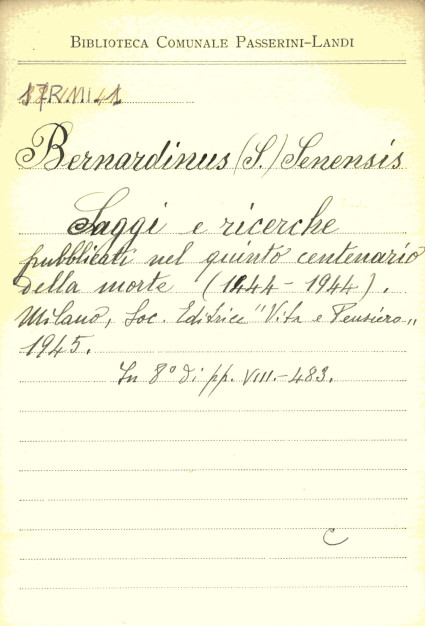 BIBLIOTECA COMUNALE PASSERINI-LANDI
Bernardinus (S.) Senensis
Saggi e ricerche
pubblicati nel quinto centenario
della morte (1444-1944).
Milano, Soc. Editrice "Vita e Pensiero„
1945.
In 8° di pp. VIII.-483.
C